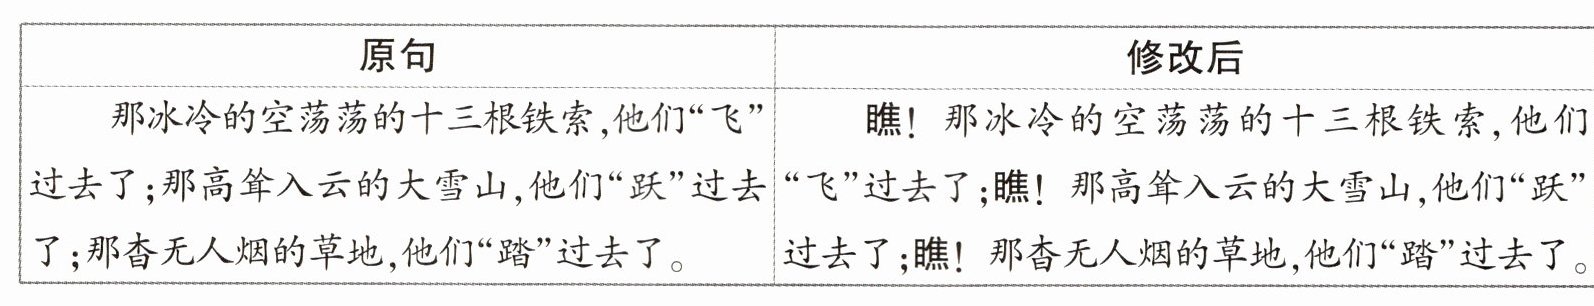 原句
那冰冷的空荡荡的十三根铁索,他们“飞”
过去了;那高耸入云的大雪山,他们“跃”过去
了;那杳无人烟的草地,他们“踏”过去了。
修改后
瞧！那冰冷的空荡荡的十三根铁索,他们
“飞”过去了;瞧！那高耸入云的大雪山,他们“跃”
过去了;瞧！那杳无人烟的草地,他们“踏”过去了。